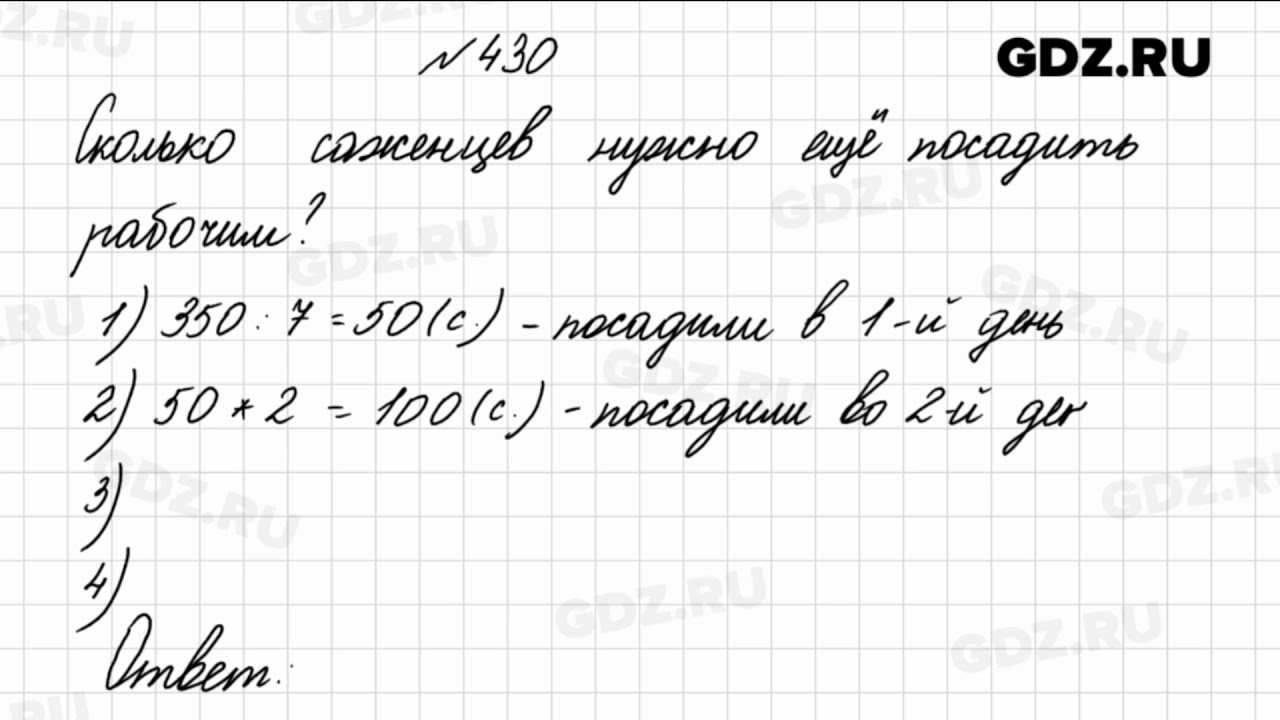 № 430
GDZ.RU
Сколько саженцев нужно ещё посадить
рабочим?
1) 350 : 7 = 50 (с.) - посадили в 1-й день
2) 50 * 2 = 100 (с.) - посадили во 2-й ден
3)
4)
Ответ: